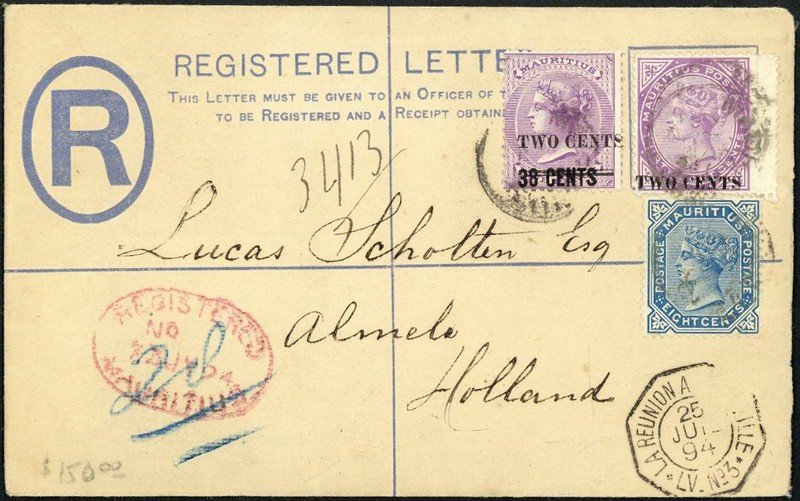 REGISTERED LETTE
THIS LETTER MUST BE GIVEN TO AN OFFICER OF T
TO BE REGISTERED AND A RECEIPT OBTAINE
R
MAURITIUS
TWO CENTS
38 CENTS
MAURITIUS POSTAGE
CENTS
TWO CENTS
MAURITIUS
POSTAGE
POSTAGE
EIGHT CENTS
3413
Lucas Scholten Esq
Almelo
Holland
REGISTERED
No
MAURITIUS
2d
LA REUNION A
25
JUIL
94
*LV. No3*
$150.00